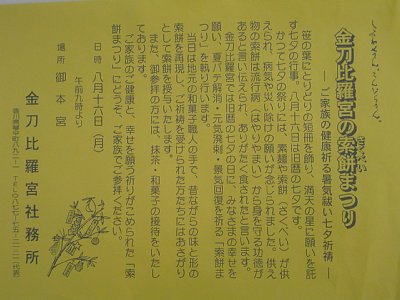 金刀比羅宮の索餅まつり
さくべい
― ご家族の健康祈る暑気祓い七夕祈祷 ―
笹の葉にとりどりの短冊を飾り、満天の星に願いを託
す七夕の行事。八月十六日は旧暦の七夕です。
かつて七夕の祭りには、素麺や索餅（さくべい）が供
えられ、病気や災い除けの願いが念じられました。供え
物の索餅は流行病（はやりやまい）から身を守る功徳が
あると言い伝えられ、ありがたく食されたと言います。
金刀比羅宮では旧暦の七夕の日に、みなさまの幸せを
願い、夏バテ解消・元気溌剌・景気回復を祈る「索餅ま
つり」を執り行います。
当日は地元の和菓子職人の手で、昔ながらの味と形の
索餅を再現し、ご祈祷を受けられた方たちにはおさがり
として索餅を授与いたします。
また、御参拝の方には、抹茶・和菓子の接待をいたし
ております。
ご家族のご健康と、幸せを願う祈りがこめられた「索
餅まつり」にどうぞ、ご家族でご参拝ください。
日時 八月十六日（月）
午前九時より
場所 御本宮
金刀比羅宮社務所